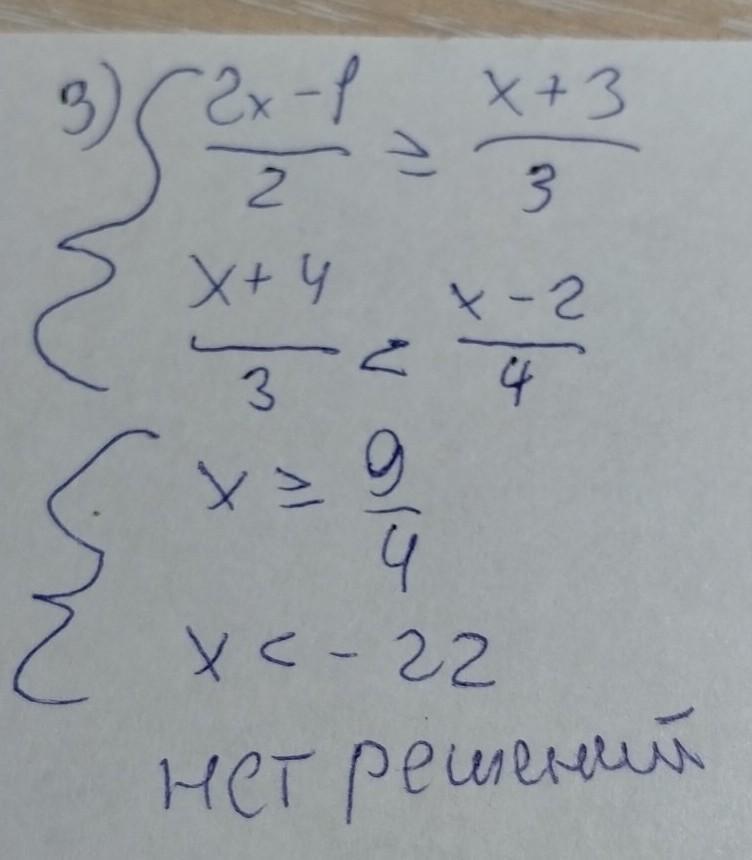 3) { (2x-1)/2 ≥ (x+3)/3
(x+4)/3 < (x-2)/4
{ x ≥ 9/4
x < -22
нет решений